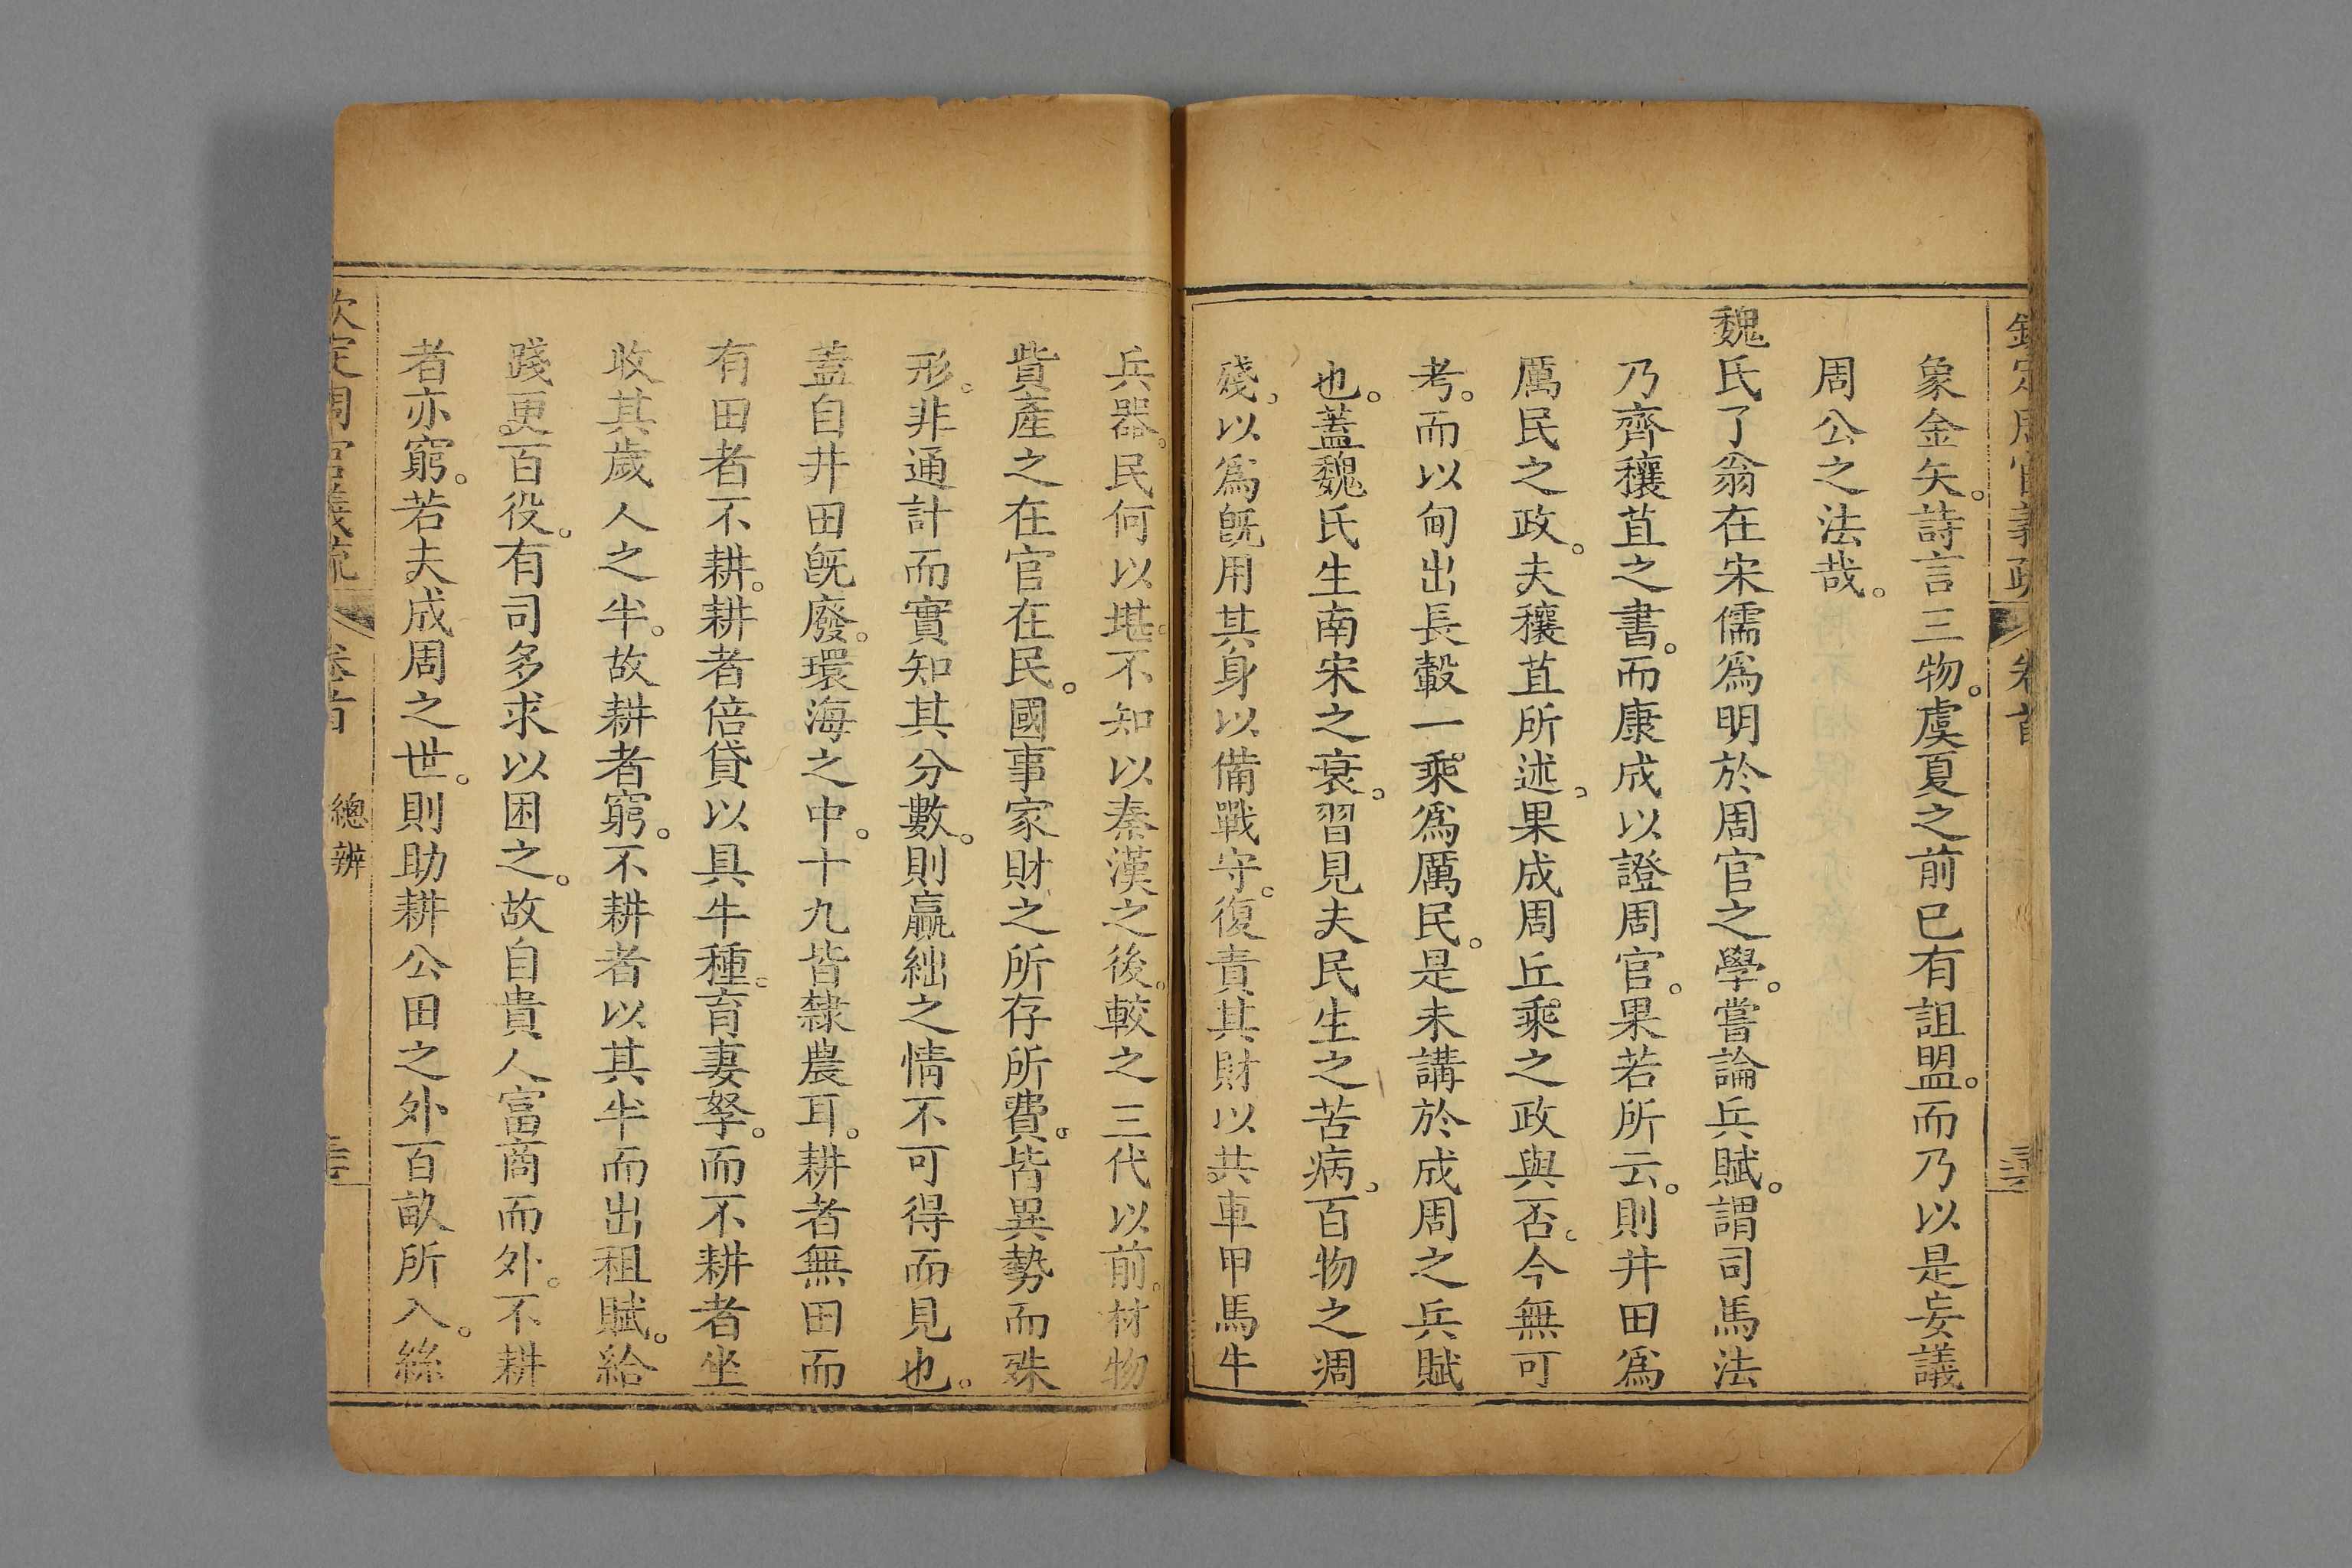 欽定周官義疏 卷首
象金矢。詩言三物。虞夏之前已有詛盟。而乃以是妄議
周公之法哉。
魏氏了翁在宋儒爲明於周官之學。嘗論兵賦。謂司馬法
乃齊穰苴之書。而康成以證周官。果若所云。則井田爲
厲民之政。夫穰苴所述。果成周丘乘之政與否。今無可
考。而以甸出長轂一乘爲厲民。是未講於成周之兵賦
也。蓋魏氏生南宋之衰。習見夫民生之苦病。百物之凋
殘。以爲旣用其身以備戰守。復責其財以共車甲馬牛
兵器。民何以堪。不知以秦漢之後。較之三代以前。材物
貲產之在官在民。國事家財之所存所費。皆異勢而殊
形。非通計而實知其分數。則贏絀之情不可得而見也。
蓋自井田旣廢。環海之中。十九皆隸農耳。耕者無田而
有田者不耕。耕者倍貸以具牛種。育妻孥。而不耕者坐
收其歲人之半。故耕者窮。不耕者以其半而出租賦。給
踐更。百役。有司多求以困之。故自貴人富商而外。不耕
者亦窮。若夫成周之世。則助耕公田之外百畝所入。絲
欽定周官義疏 卷首 總辨